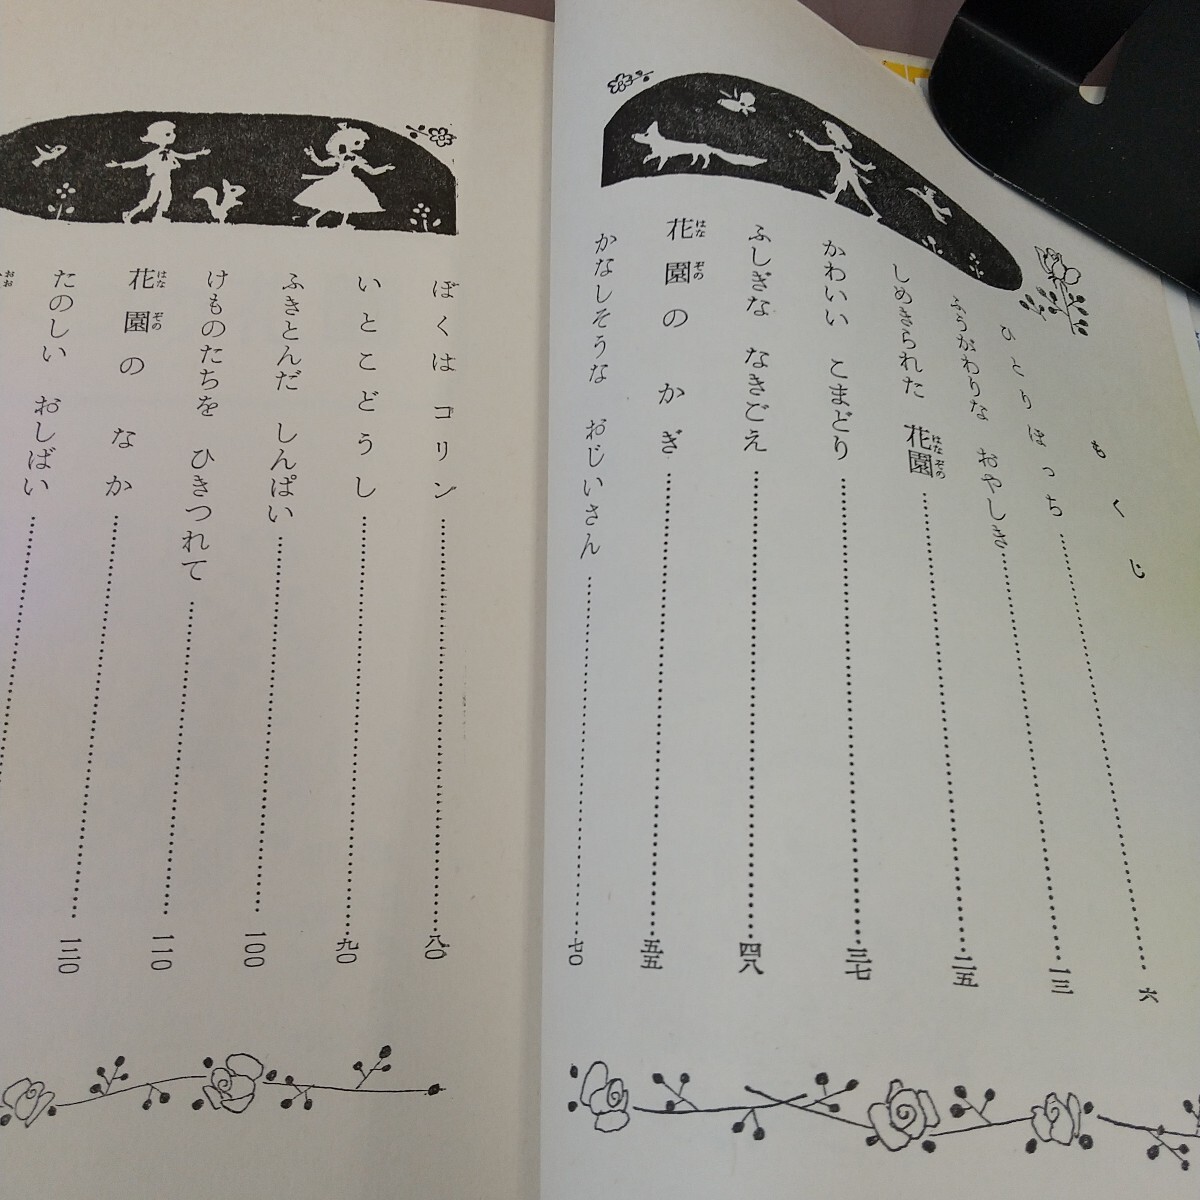 もくじ
ひとりぼっち……六
ふうがわりな おやしき……一三
しめきられた 花園……二五
はな ぞの
かわいい こまどり……三七
ふしぎな なきごえ……四八
花園の かぎ……五五
はな ぞの
かなしそうな おじいさん……七〇
ぼくは コリン……八〇
いとこどうし……九〇
ふきとんだ しんぱい……一〇〇
けものたちを ひきつれて……一一〇
花園の なか……一二〇
はな ぞの
たのしい おしばい
おお